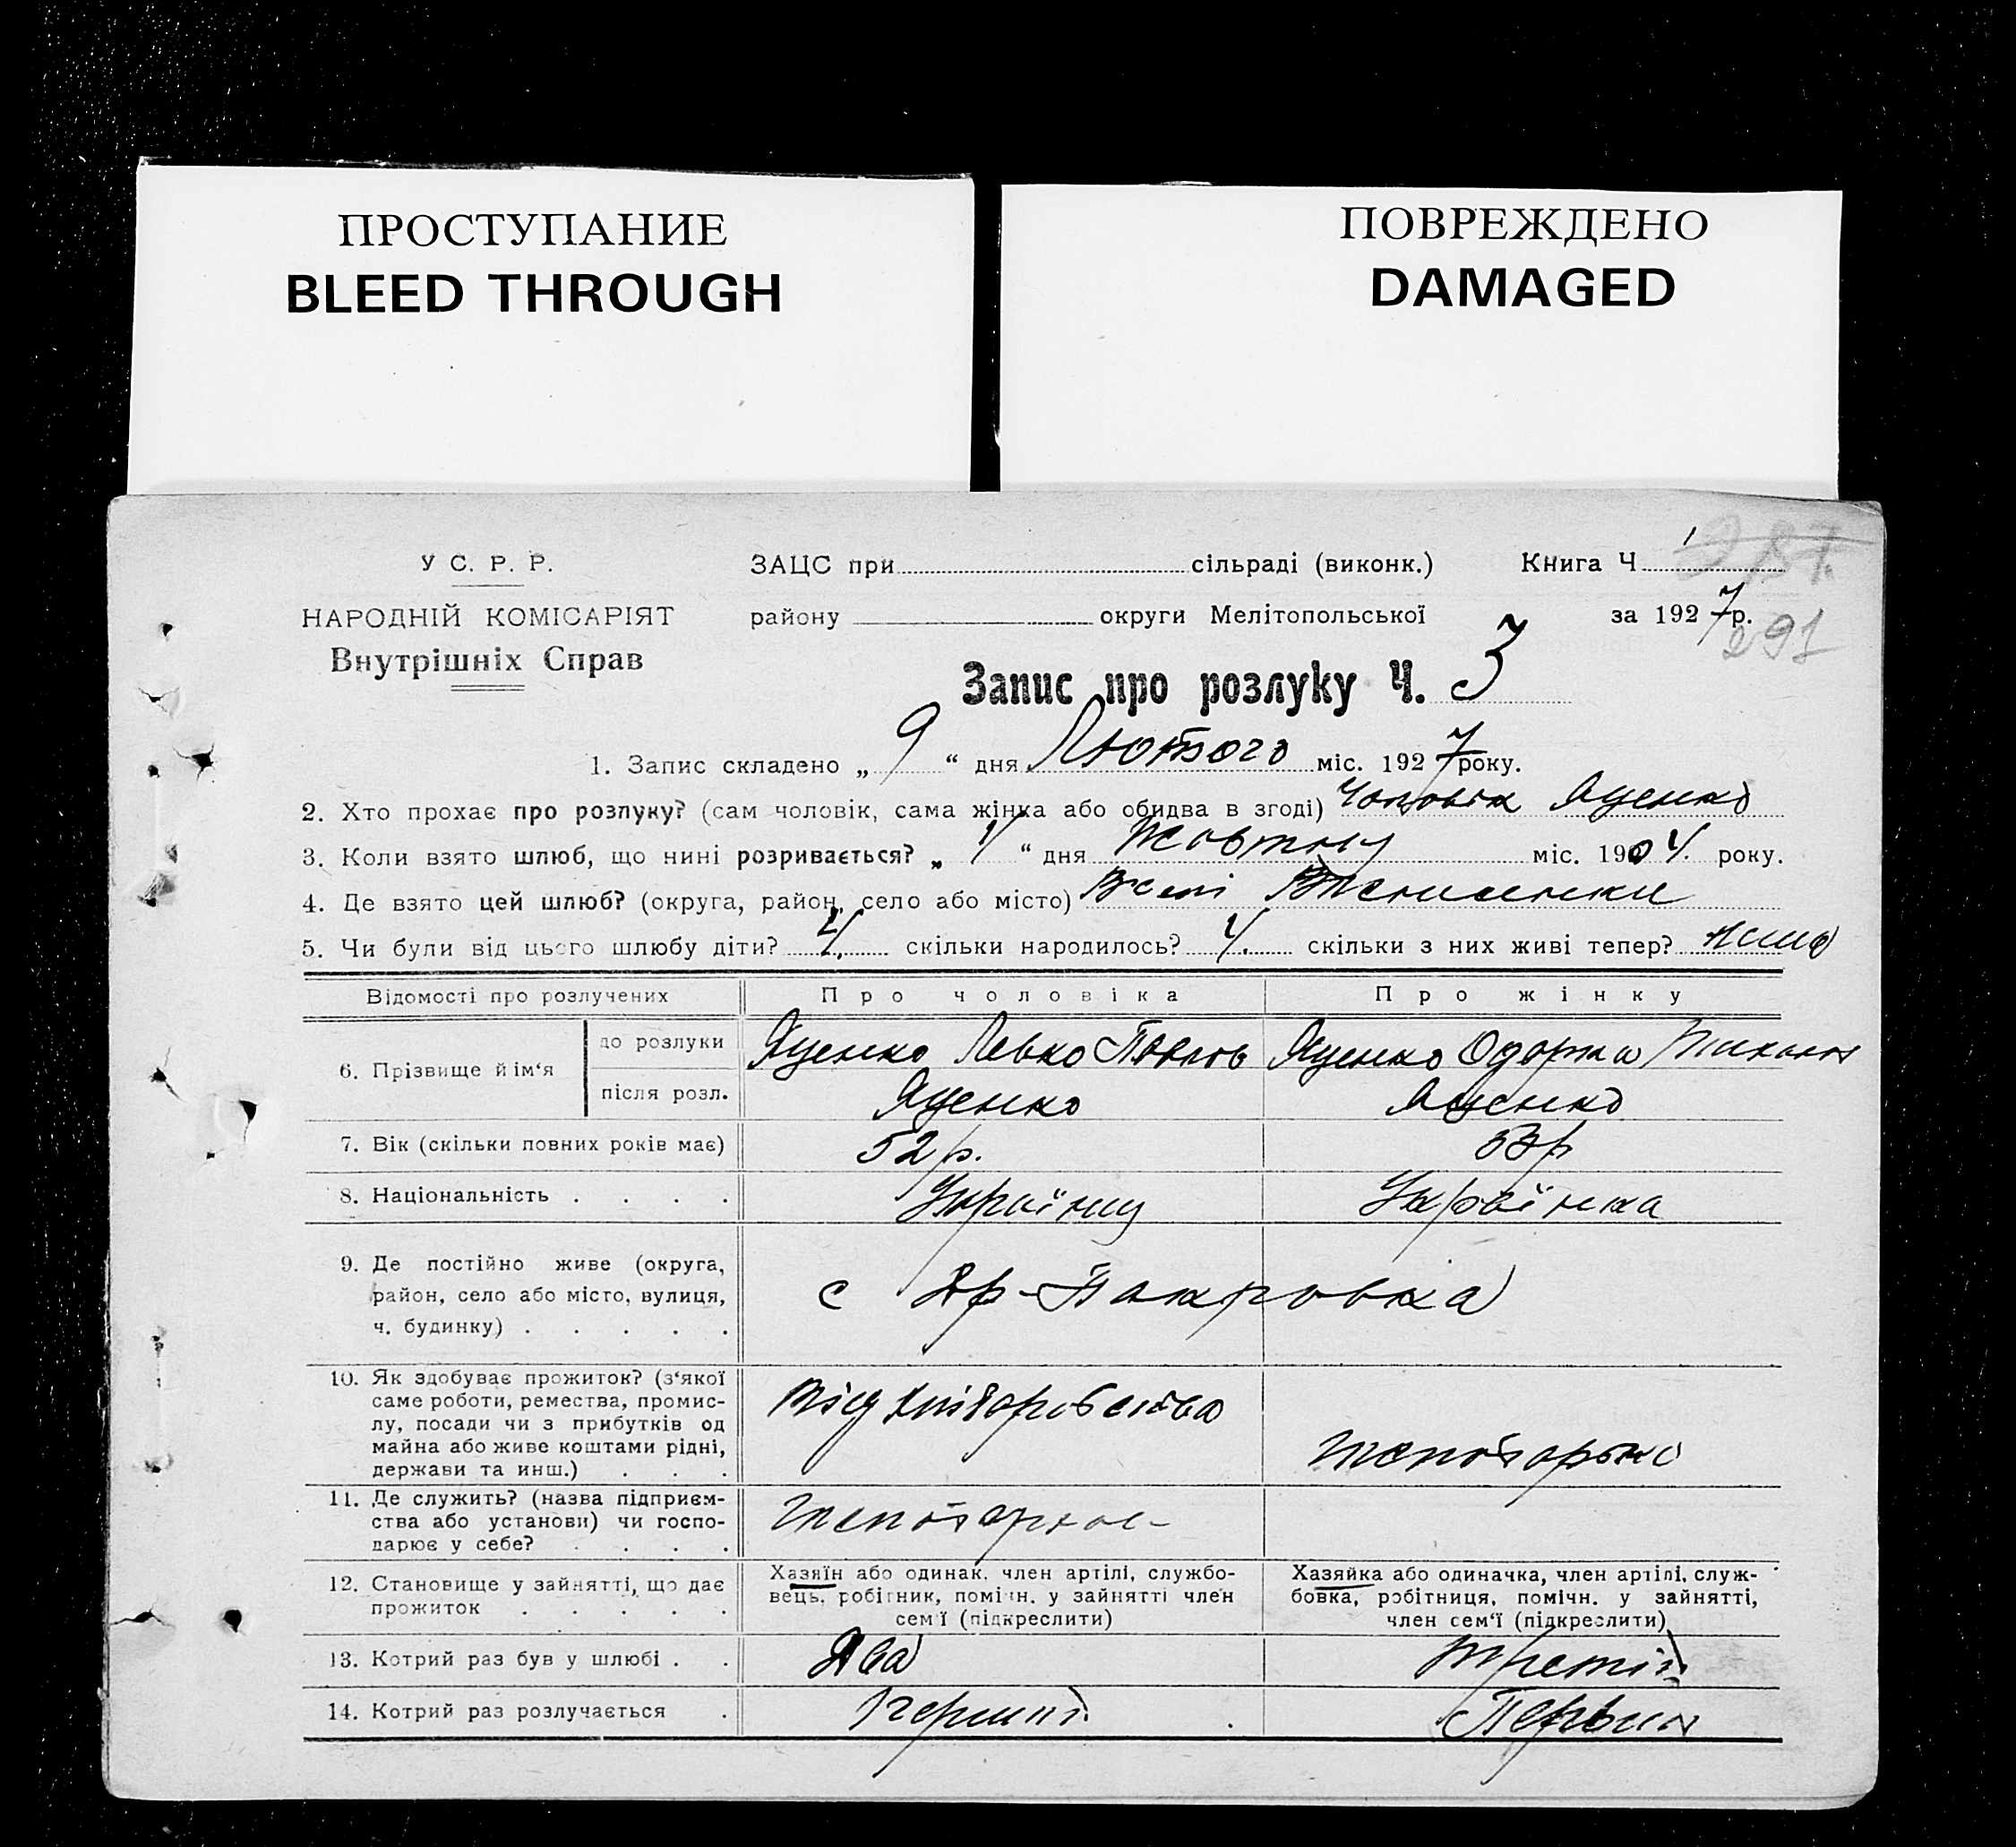 ПРОСТУПАНИЕ
BLEED THROUGH
ПОВРЕЖДЕНО
DAMAGED
У С. Р. Р.
НАРОДНІЙ КОМІСАРІЯТ
Внутрішніх Справ
ЗАЦС при сільраді (виконк.) Книга Ч 1
району округи Мелітопольської за 1927 р.
291
Запис про розлуку Ч. 3
1. Запис складено „ 9 “ дня Лютого міс. 1927 року.
2. Хто прохає про розлуку? (сам чоловік, сама жінка або обидва в згоді) Чоловік Яценко
3. Коли взято шлюб, що нині розривається? „ “ дня Жовтну міс. 1904. року.
4. Де взято цей шлюб? (округа, район, село або місто) В селі
5. Чи були від цього шлюбу діти? 4. скільки народилось? 4. скільки з них живі тепер?
Відомості про розлучених Про чоловіка Про жінку
6. Прізвище й ім‘я до розлуки Яценко Левко Павлов Яценко Одарка
після розл. Яценко Яценко
7. Вік (скільки повних років має) 52 р. 53 р
8. Національність . . . . Українц Українка
9. Де постійно живе (округа,
район, село або місто, вулиця,
ч. будинку) . . . . .
с Яр-Пакровка
10. Як здобуває прожиток? (з‘якої
саме роботи, ремества, промис-
лу, посади чи з прибутків од
майна або живе коштами рідні,
держави та инш.) . . .
Від хліборобства
11. Де служить? (назва підприєм-
ства або установи) чи госпо-
дарює у себе? . . . .
12. Становище у зайнятті, що дає
прожиток . . . . .
Хазяїн або одинак, член артілі, службо-
вець, робітник, помічн. у зайнятті член
сем‘ї (підкреслити)
Хазяйка або одиначка, член артілі, служ-
бовка, робітниця, помічн. у зайнятті,
член сем‘ї (підкреслити)
13. Котрий раз був у шлюбі . . Два Третій
14. Котрий раз розлучається .